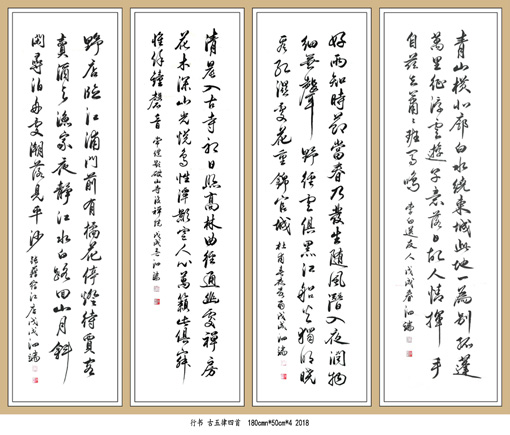 青山橫北郭白水繞東城此地一為別孤蓬
萬里征浮雲遊子意落日故人情揮手
自茲去蕭々班馬鳴 李白送友人 戊戌春泗瑞
好雨知時節當春乃發生隨風潛入夜潤物
細無聲野徑雲俱黑江船火獨明曉
看紅濕處花重錦官城 杜甫春夜喜雨戊戌泗瑞
清晨入古寺初日照高林曲徑通幽處禪房
花木深山光悅鳥性潭影空人心萬籟此俱寂
惟餘鐘磬音 常建題破山寺後禪院戊戌春泗瑞
野店臨江浦門前有橘花停燈待賈客
賣酒與漁家夜靜江水白路回山月斜
閑尋泊舟處潮落見平沙 張籍宿江店戊戌泗瑞
行书 古五律四首 180cmn*50cm*4 2018